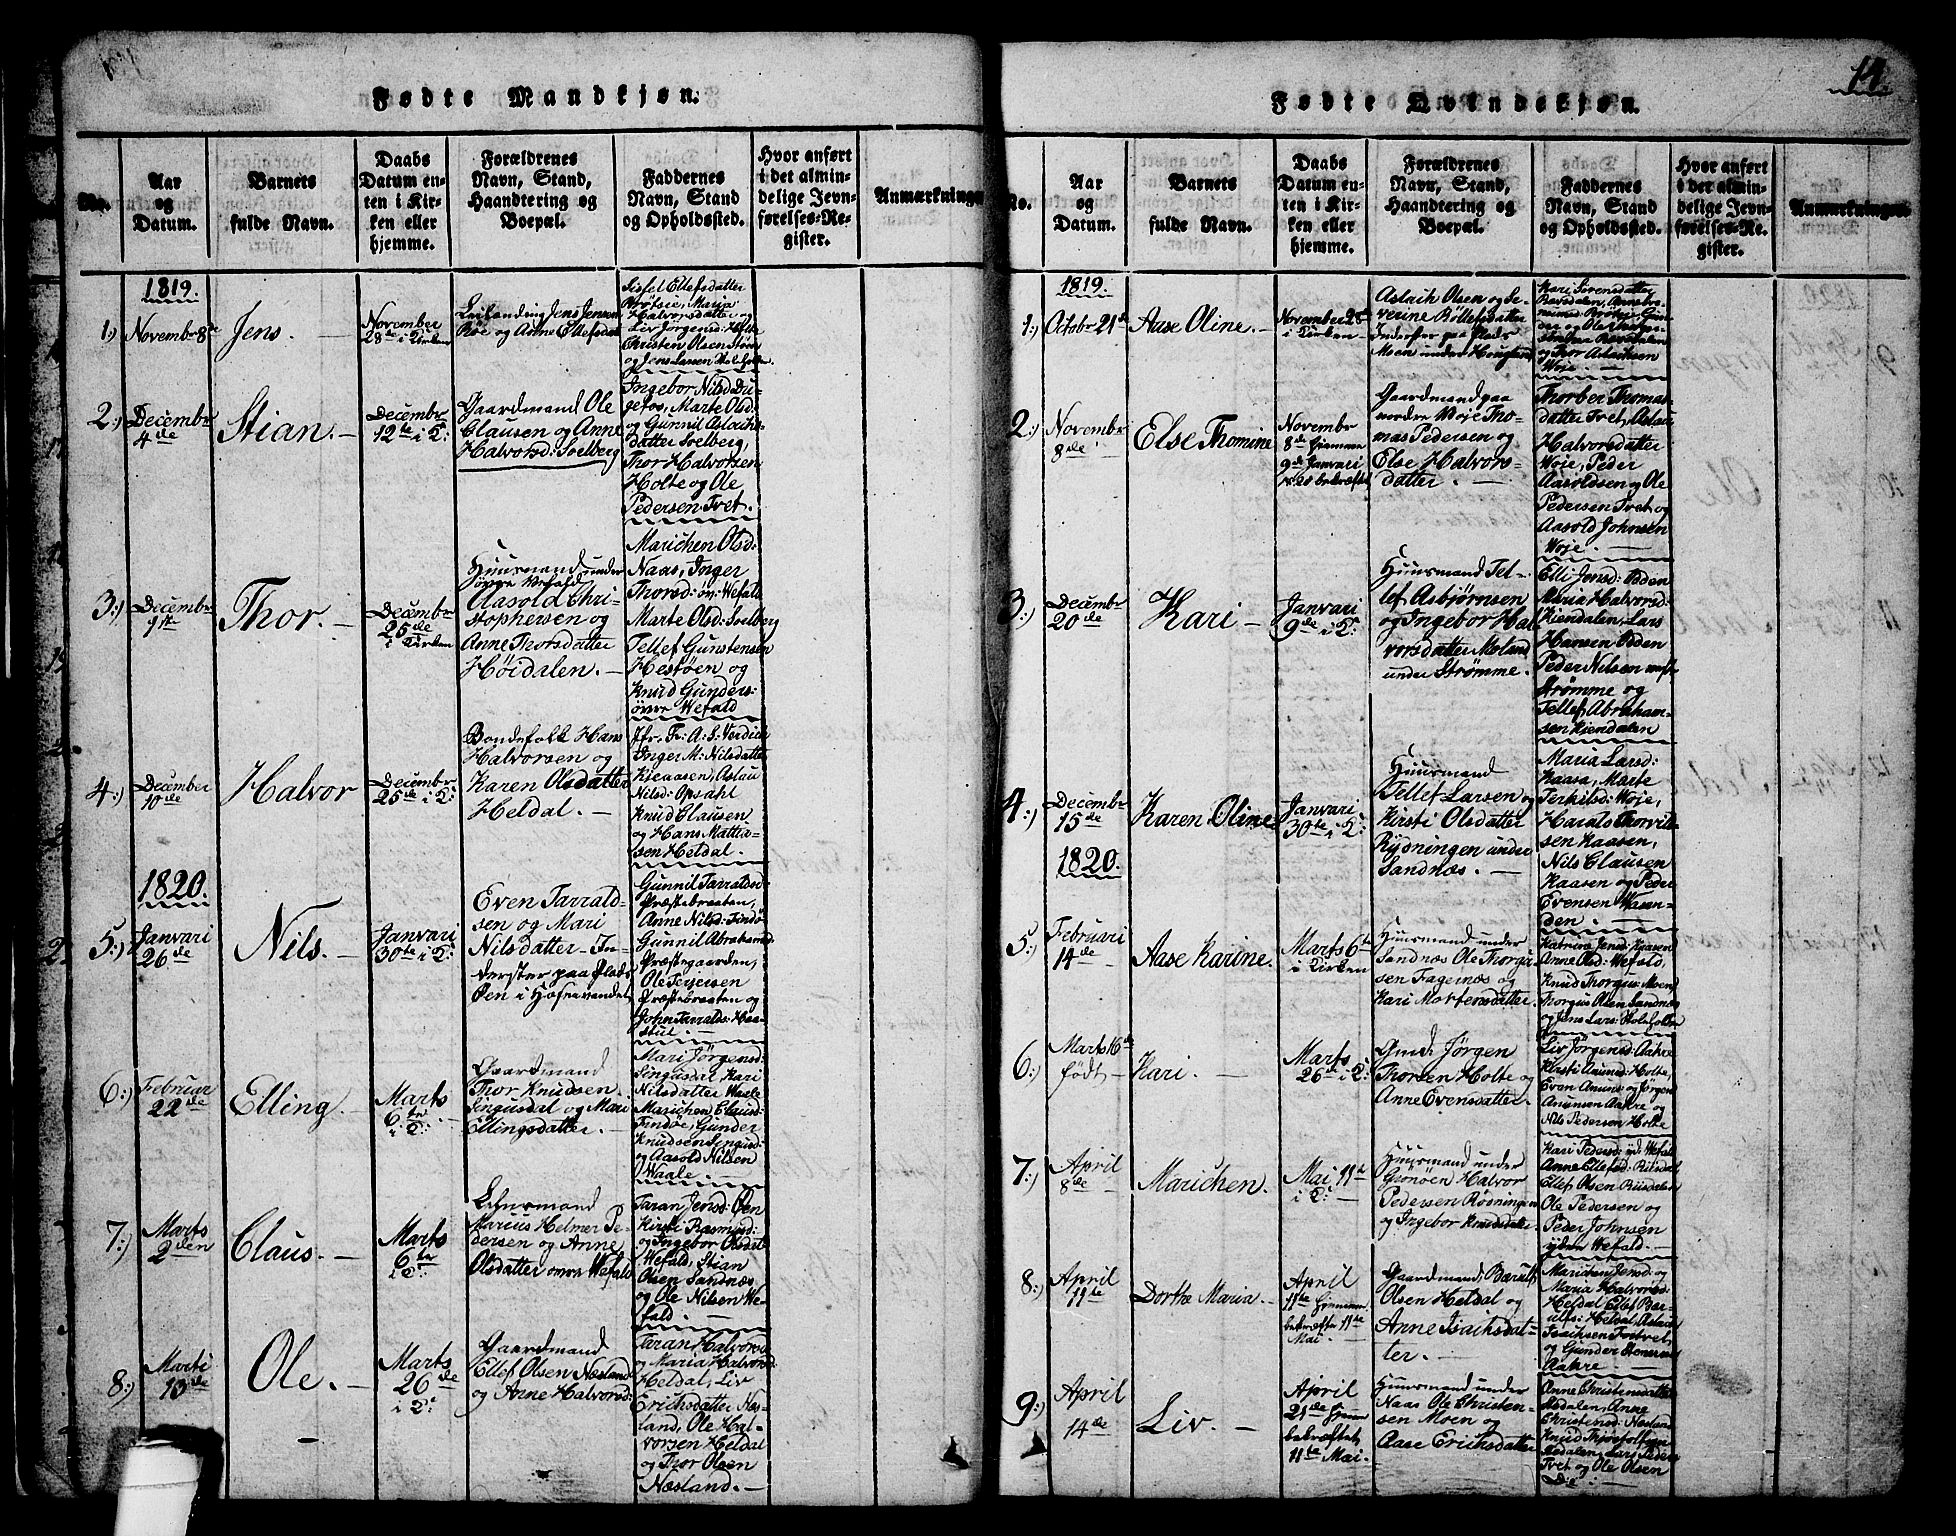 14.
Fødte Mandkjøn.
No.
Aar
og
Datum.
Barnets
fulde Navn.
Daabs
Datum en-
ten i Kir-
ken eller
hjemme.
Forældrenes
Navn, Stand,
Haandtering og
Boepæl.
Faddernes
Navn, Stand
og Opholdssted.
Hvor anført
i det almin-
delige Jevn-
førelses-Re-
gister.
Anmærkninger
1819.
1:)
Novembr 8de
Jens.
November
28de i Kirken
Leilænding Jens Jensen
Røe og Anne Ellefsdat
Sissel Ellefsdatter
Brøtsie, Maria
Halvorsdatter og
Liv Jørgensd: Holte
Christen Olsen Støen
og Jens Larssen
2:)
Decembr
4de
Stian. —
Decembr
12te i K:
Gaardmand Ole
Clausen og Anne
Halvorsd: Solberg
Ingebor Nilsd Du-
gefos, Marte Olsd:
og Gunnil Aslachs-
datter Solberg,
Thor Halvorsen
Holte og Ole
Pedersen Tvet.
3:)
Decembr
9de
Thor. —
Decembr
25de
i Kirken
Huusmand under
øvre Wefald
Aasold Chri-
stophersen og
Anne Thorsdatter
Høidalen. —
Marichen Olsd:
Naas, Inger
Thorsd: ov: Wefald
Marte Olsd: Solberg
Tellef Gunstensen
Hestøen og
Knud Gunders:
øvre Wefald
4:)
December
10de
Halvor
Decembr
25de i K:
Bondefolk Hans
Halvorsen og
Karen Olsdatter
Heldal. —
Jfr. Fr: A: S: Verdich
Inger M: Nilsdatter
Kieaasen, Aslau
Nilsd: Opsahl
Knud Clausen
og Hans Mattia-
sen Heldal. —
1820.
5:)
Janvari
26de
Nils. —
Janvari
30te i K:
Even Tarrald-
sen og Mari
Nilsdatter – In-
derster paa Plads
Øen i
Gunnil Tarraldsd:
Præstebraaten,
Anne Nilsd: Findø
Gunnil Abrahamsd
Præstegaarden,
Ole Terjersen
Præstebraaten og
John Tarralds: Haa-
stul. —
6:)
Februar
22de
Elling. —
Marts
6te
i K:
Gaardmand
Thor Knudsen
Singusdal og Mari
Ellingsdatter. —
Mari Jørgensd:
Singusdal Kari
Nilsdatter Waale
Marichen Clausd:
Findøe, Gunder
Knudsen Singusd:
og Aasold Nilsen
Waale. —
7:)
Marts
2den
Claus. —
Marts
6te
i K:
Lehnsmand
Marius Helmer Pe-
dersen og Anne
Olsdatter øvre Wefald
Taran Jensd: Øen
Kirsti Rasmusd:
og Ingebor Olsdat
Wefald, Stian
Olsen Sandnæs
og Ole Nilsen We-
fald. —
8:)
Marti
13de
Ole. —
Marts
26de
i K:
Gaardmand
Ellef Olsen Næsland
og Anne Halvorsd:
Taran Halvorsd
og Maria Halvorsd:
Heldal, Liv
Erichsdatter Næs-
land, Ole Hal-
vorsen Heldal
og Thor Olsen
Næsland. —
Fødte Qvindekjøn.
No.
Aar
og
Datum.
Barnets
fulde Navn.
Daabs
Datum en-
ten i Kir-
ken eller
hjemme.
Forældrenes
Navn, Stand,
Haandtering og
Boepæl.
Faddernes
Navn, Stand
og Opholdssted.
Hvor anført
i det almin-
delige Jevn-
førelses-Re-
gister.
Anmærkninger.
1819.
1:)
Octobr 21de
Aase Oline. —
November 28de
i Kirken
Aslach Olsen og Se-
verine Rollefsdatter
Inderster paa Plads
Moen under Hougland
Kari Sørensdatter
Revsdalen,
og Thor Aslachsen
Woje. —
2:)
Novembr
8de
Else Thomine
Novembr
8de hjemme
9de Janvari
1820 bekræftet
Gaardmand paa
nordre Woje Tho-
mas Pedersen og
Else Halvors-
datter. —
Thorber Thomas-
datter Tvet, Aslau
Halvorsdatter
Woje, Peder
Aasoldsen og Ole
Pedersen Tvet og
Aasold Johnsen
Woje. —
3:)
Decembr
20de
Kari —
Janvari
9de i K:
Huusmand Tel-
lef Asbjørnsen
og Ingebor Hal-
vorsdatter Moland
under Strømme.
Elli Jensd: Eden
Maria Halvorsd:
Kiendalen, Lars
Hansen Eden
Peder Nilsen
Strømme og
Tellef Abraham-
sen Kiendalen
4:)
Decembr
15de
Karen Oline
Janvari
30te i K:
Huusmand
Tellef Larsen og
Kirsti Olsdatter
Rydningen under
Sandnæs. —
Maria Larsd:
Kaasa, Marte
Terkilsd: Woje,
Harals Thorvil-
sen Kaasen,
Nils Clausen
Kaasen og Peder
Evensen Waan-
den. —
1820.
5:)
Februari
14de
Aase Karine.
Marts 6te
i Kirken
Huusmand under
Sandnæs Ole Thorgu-
sen Fagernæs og
Kari Mortensdatter.
Katrine Jensd: Kaasen
Anne Olsd: Wefald,
Knud Thorgus: Moen
Thorgus Olsen Sandnæs
og Jens Lars:
6:)
Marts 16de
født
Kari. —
Marts
26de i K:
Gmd: Jørgen
Thorsen Holte og
Anne Evensdatter.
Liv Jørgensd: Aakre
Kirsti Aanunds: Holte,
Even Anuns: og Jørgen
Anunsen Aakre og
Nils Pedersen Holte
7:)
April
8de
Marichen.
Mai 11te
i K:
Huusmand under
Grønøen Halvor
Pedersen Rødningen
og Ingebor Knudsdat:
Kari Pedersd: yd: Wefald
Anne Ellefsd: Riisdal
Ellef Olsen Riisdalen
Ole Pedersen og
Peder Johnsen
yder Wefald. —
8:)
April
11te
Dorthe Maria. —
April
11te hjemme
bekræftet 11te
Mai. —
Gaardmand Børulf
Olsen Heldal og
Anne Isachsdat-
ter. —
Marichen Jensd: og
Maria Halvorsd:
Heldal Ellef Bør-
ulfs: Heldal, Aslach
Isachsen Tostvet
og Gunder Stenersen
Aakre. —
9:)
April
14de
Liv. —
April
21de hjem
bekræftet
11te Mai.
Huusmand under
Naas Ole Christen-
sen Moen og
Aase Erichsdatter
Anne Christensdatter
Stedalen, Anne
Christensd: Næsland
Knud Thjostolfsen
Stedalen, Lars Peders:
Tvet og Ole Olsen
Do: —